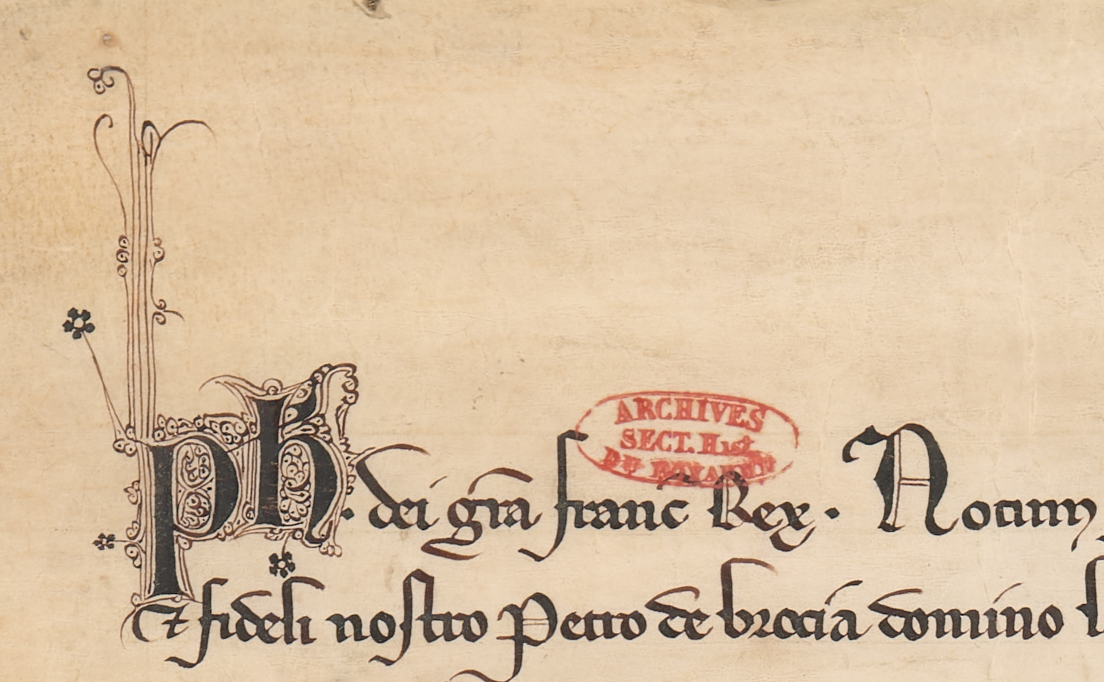 ARCHIVES
SECT. Hist.
DU ROYAUME
ph. dei gr̃a franc̃ Rex. Notum
et fideli nostro Petro de brocia domino